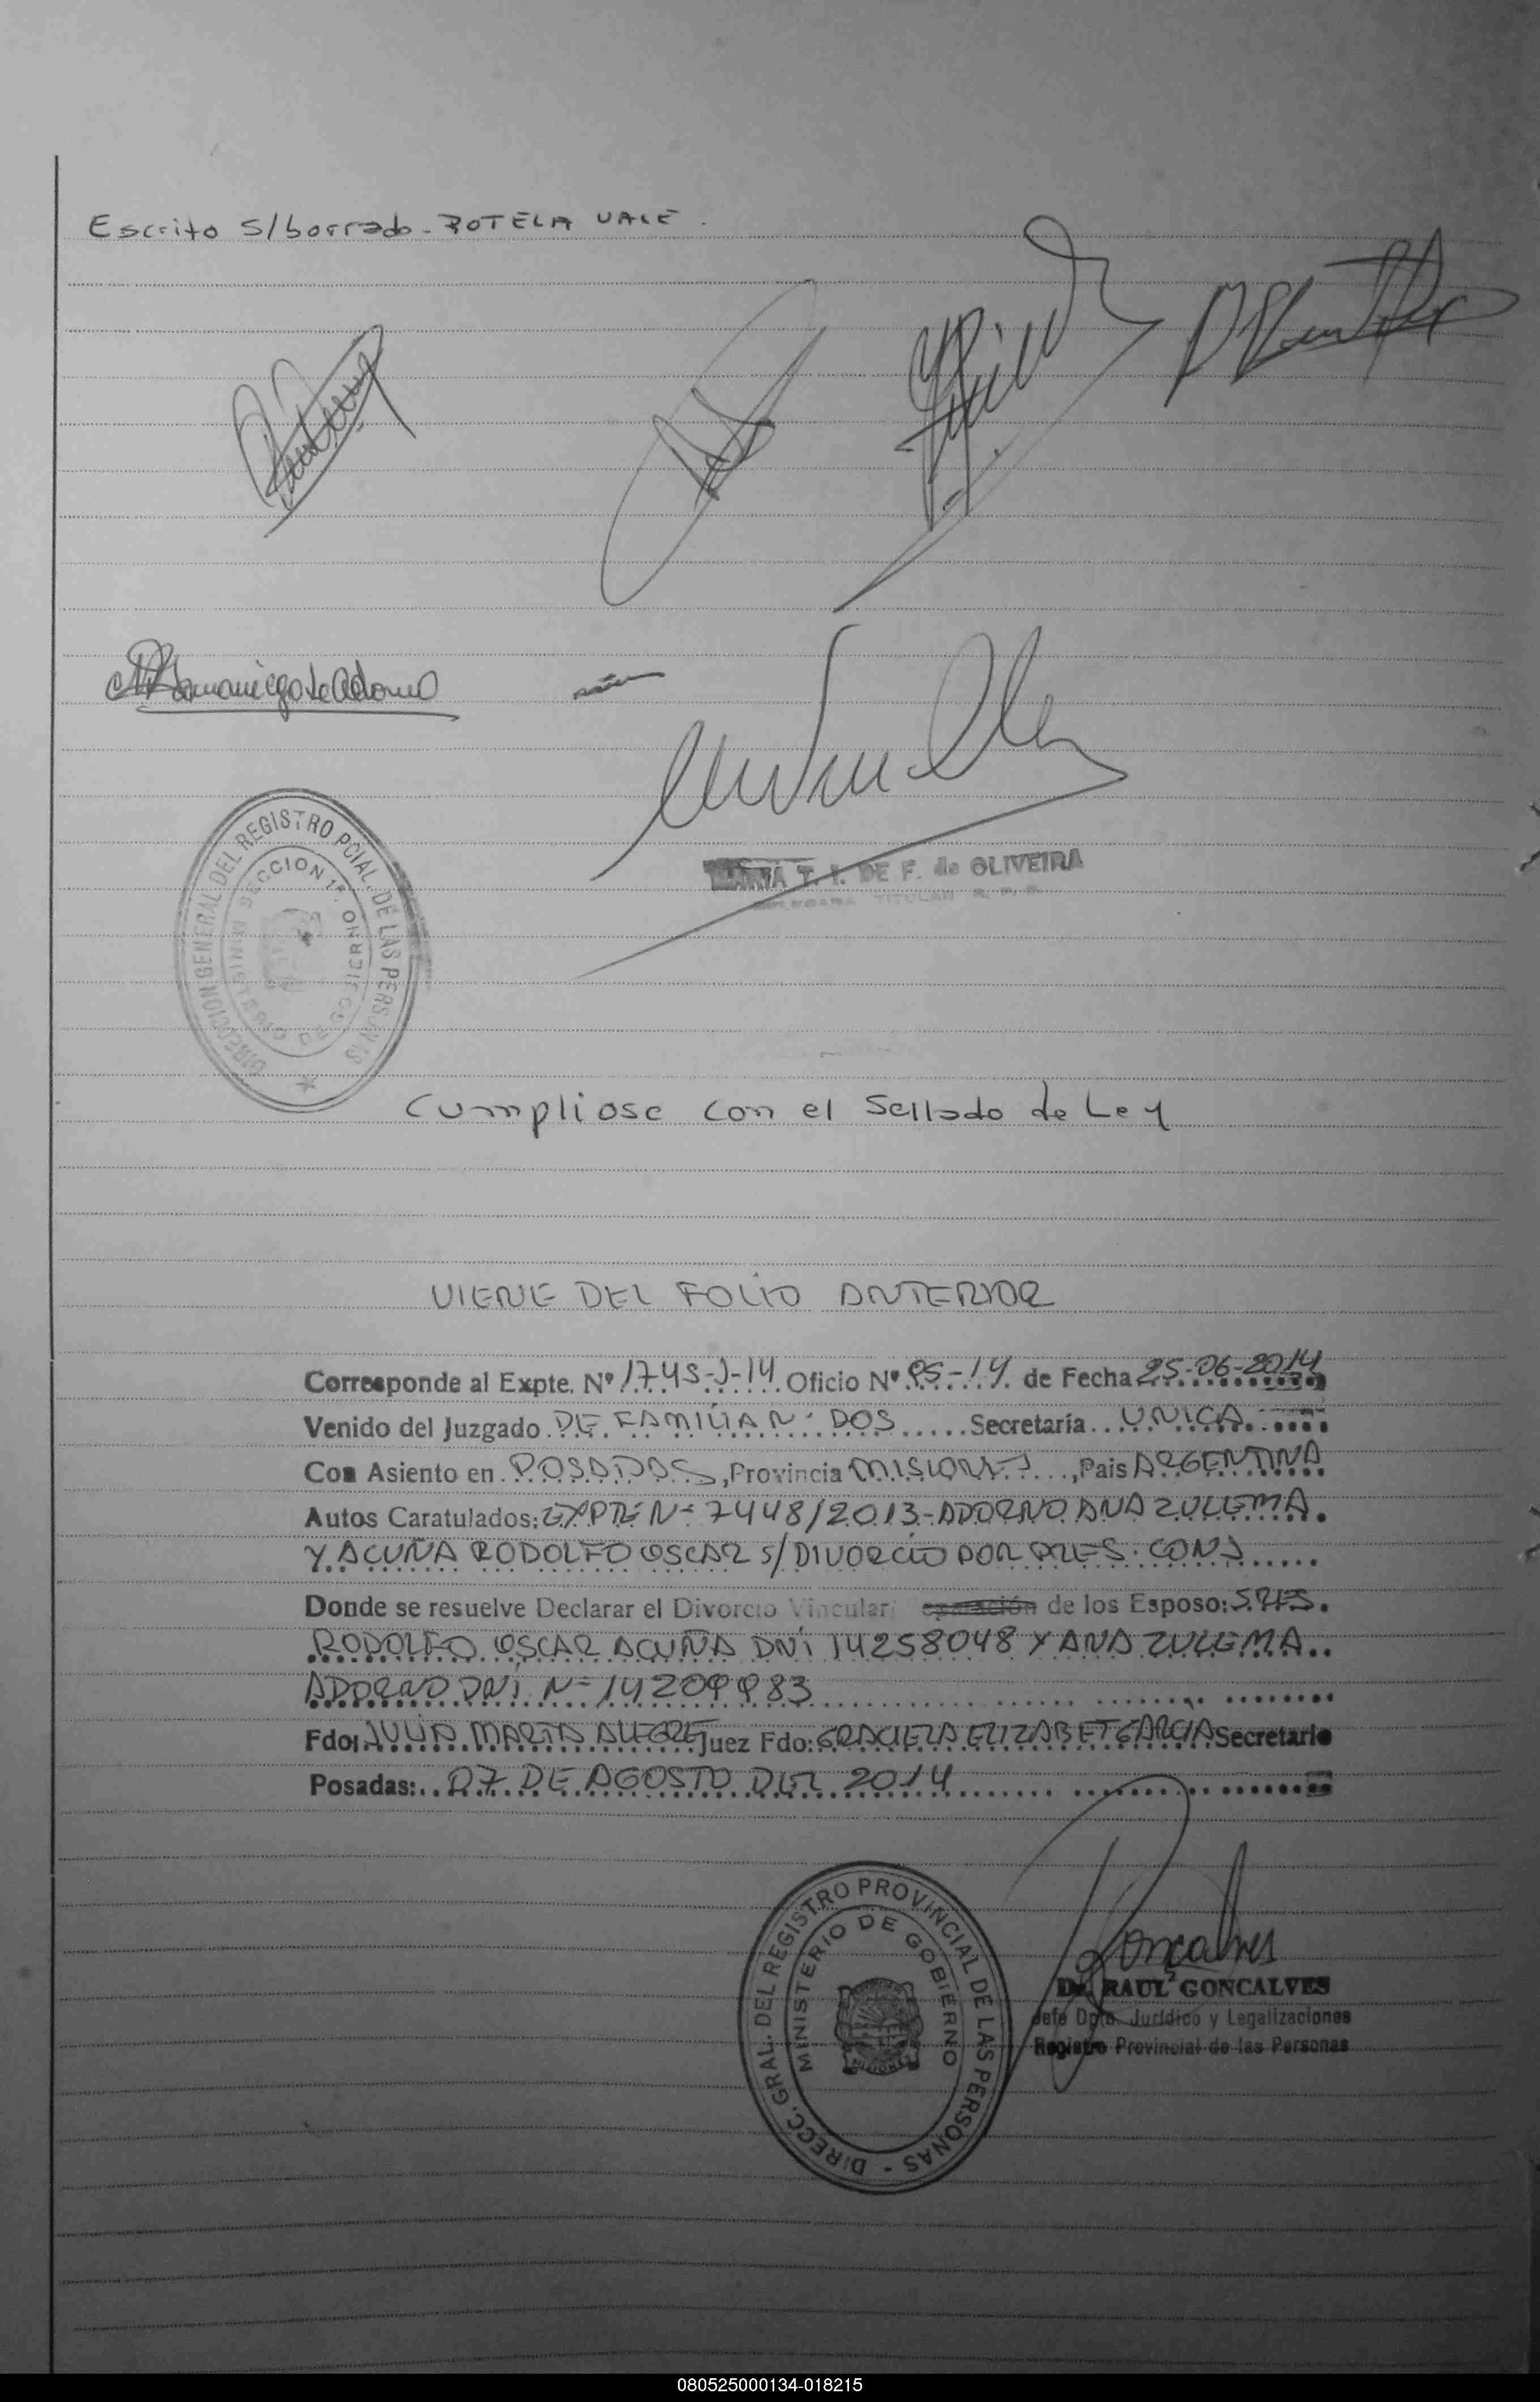 Escrito s/borrado - BOTELA VALE.
Samaniego de Adorno
MARIA T. I. DE F. de OLIVEIRA
TITULAR
DIRECCION GENERAL DEL REGISTRO PCIAL. DE LAS PERSONAS
SECCION 1ª
MINISTERIO DE GOBIERNO
Cumpliose con el Sellado de Ley
VIENE DEL FOLIO ANTERIOR
Corresponde al Expte. Nº 1745-J-14 Oficio Nº 95-14 de Fecha 25-06-2014
Venido del Juzgado DE FAMILIA Nº DOS Secretaría UNICA
Con Asiento en POSADAS, Provincia MISIONES, Pais ARGENTINA
Autos Caratulados: EXPTE Nº 7448/2013-ADORNO ANA ZULEMA
Y ACUÑA RODOLFO OSCAR S/ DIVORCIO POR PRES. CONJ
Donde se resuelve Declarar el Divorcio Vincular eparación de los Esposo: SRES.
RODOLFO OSCAR ACUÑA DNI 14258048 Y ANA ZULEMA
ADORNO DNI Nº 14209983
Fdo: JULIA MARTA ALEGRE Juez Fdo: GRACIELA ELIZABET GARCIA Secretario
Posadas: 07 DE AGOSTO DEL 2014
DIRECC. GRAL. DEL REGISTRO PROVINCIAL DE LAS PERSONAS -
MINISTERIO DE GOBIERNO
MISIONES
Goncalves
Dr. RAUL GONCALVES
Jefe Dpto. Jurídico y Legalizaciones
Registro Provincial de las Personas
080525000134-018215